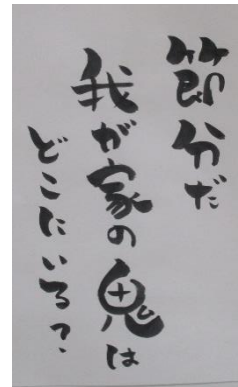 節分だ
我が家の鬼は
どこにいる?